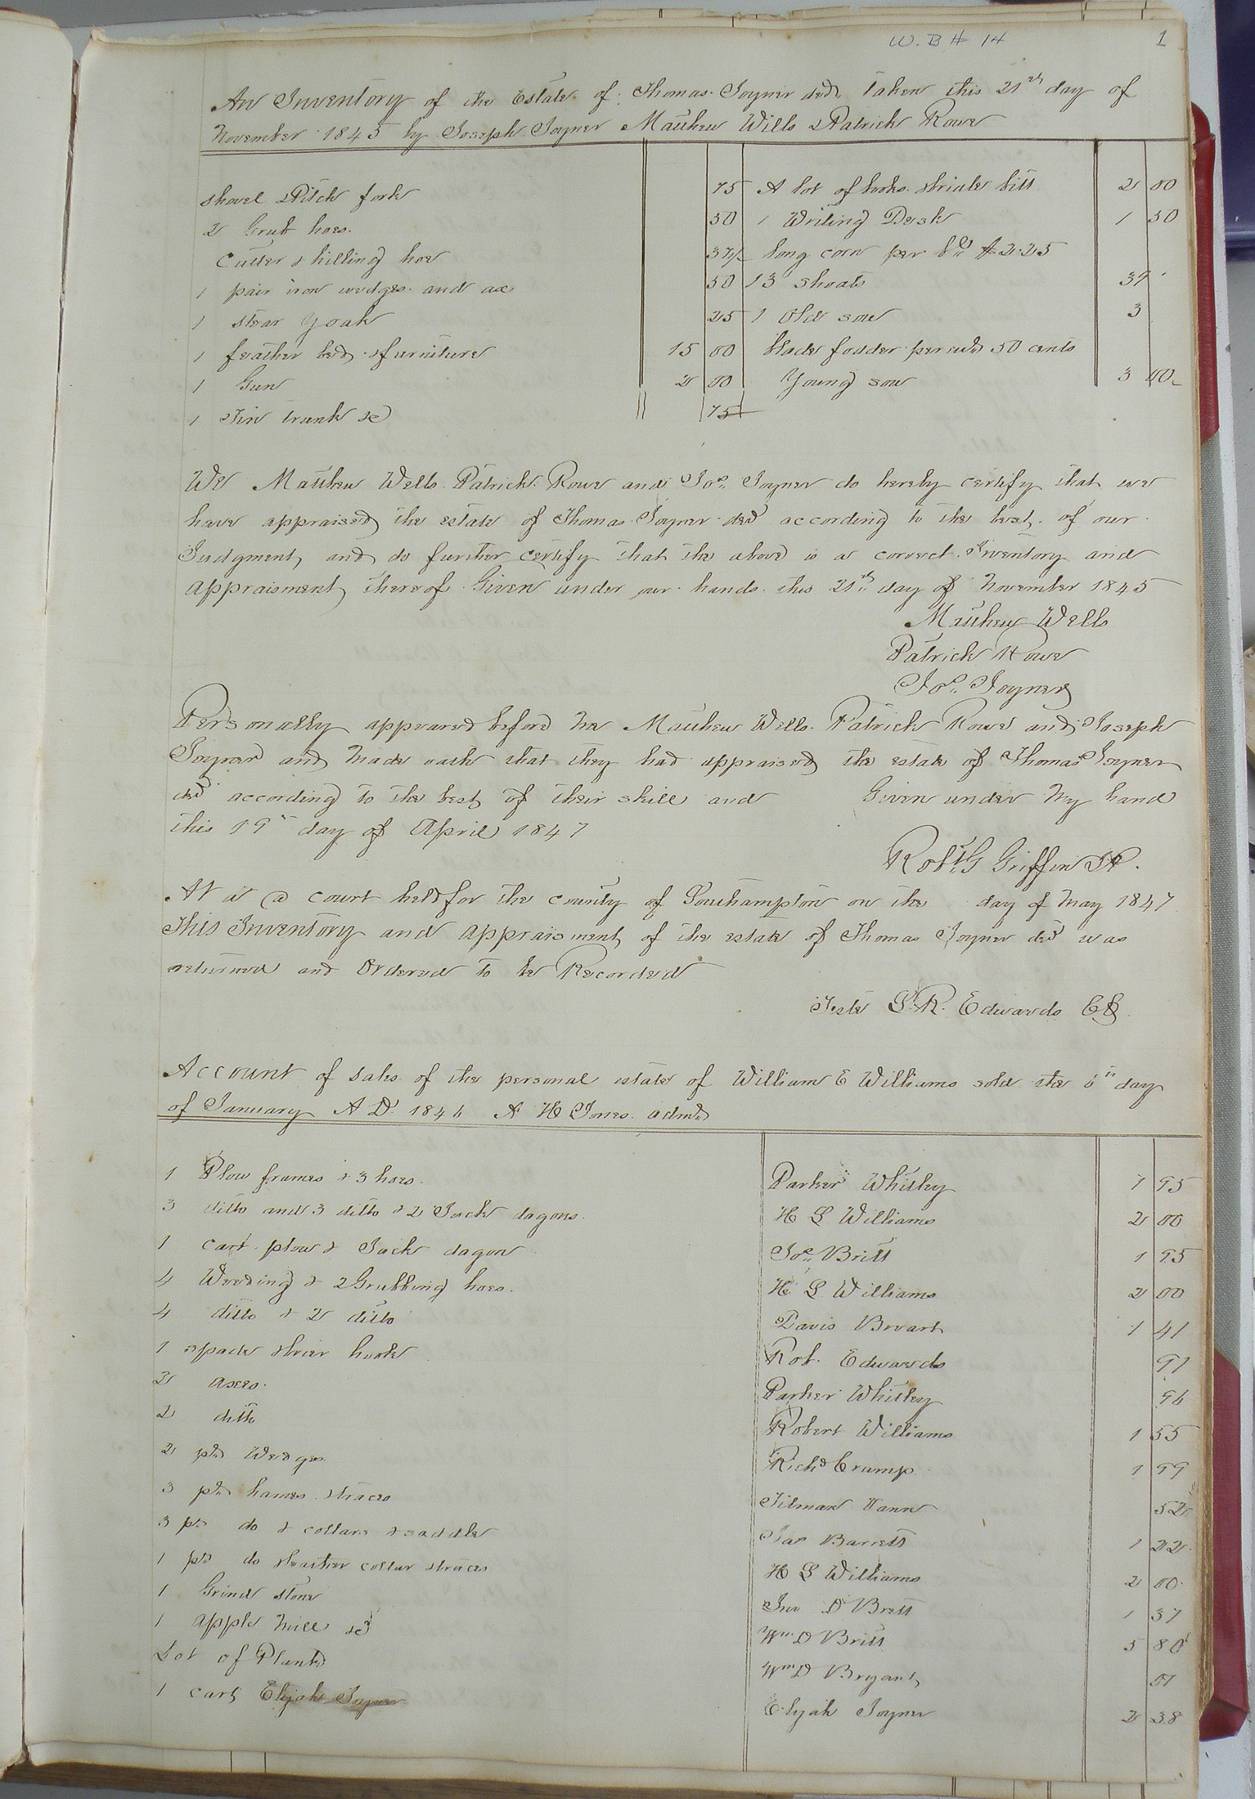 W. B # 14
1
An Inventory of the Estate of Thomas Joyner decd Taken this 21th day of
November 1845 by Joseph Joyner Mathew Wells & Patrick Rowe
shovel & Pitch fork 75
2 Grub hoes. 50
Cutter & hilling hoe 37½
1 pair iron wedges and ax 50
1 stear Yoak 25
1 feather bed & furniture 15 00
1 Gun 2 00
1 Tin trunk &c 75
A lot of books 2 00
1 Writing Desk 1 50
long corn per bll $2.25
13 shoats 39
1 Old sow 3
blade fodder per cwt 50 cents
Young sow 3 00
We Mathew Wells Patrick Rowe and Jos. Joyner do hereby certify that we
have appraised the estate of Thomas Joyner decd according to the best of our
Judgment, and do further certify that the above is a correct Inventory and
Appraisment thereof Given under our hands this 21th day of November 1845
Mathew Wells
Patrick Rowe
Jos. Joyner
Personally appeared before me Mathew Wells Patrick Rowe and Joseph
Joyner and Made oath that they had appraised the estate of Thomas Joyner
decd according to the best of their skill and Given under My hand
this 19th day of April 1847
Robt. G Griffin JP.
At a court held for the county of Southampton on the day of May 1847
This Inventory and Appraisment of the estate of Thomas Joyner decd was
returned and Ordered to be Recorded
Teste L. R. Edwards CC
Account of sales of the personal estate of William E Williams sold the 6th day
of January A D. 1846 A H Jones admr
1 Plow frames & 3 hoes. Parker Whitley 1 95
3 ditto and 3 ditto & 2 Jack dagons. H L Williams 2 00
1 cart plow & Jack dagon Jos. Britt 1 95
4 Weeding & 2 Grubbing hoes. H L Williams 2 00
4 ditto & 2 ditto Davis Bryant 1 41
1 spade hook Rob. Edwards 91
2 axes. Parker Whitley 96
2 ditto Robert Williams 1 55
2 prs Wedges Richd Crump 1 99
3 prs hames & traces Tilman Vann 52
3 prs do & collars & saddle Jas Barrett 1 22
1 pr do & leather collar & traces H L Williams 2 00
1 Grind stone Jno D Britt 1 37
1 apple Mill &c Wm D Britt 5 80
Lot of Plank Wm D Bryant 01
1 cart Elijah Joyner Elijah Joyner 2 38